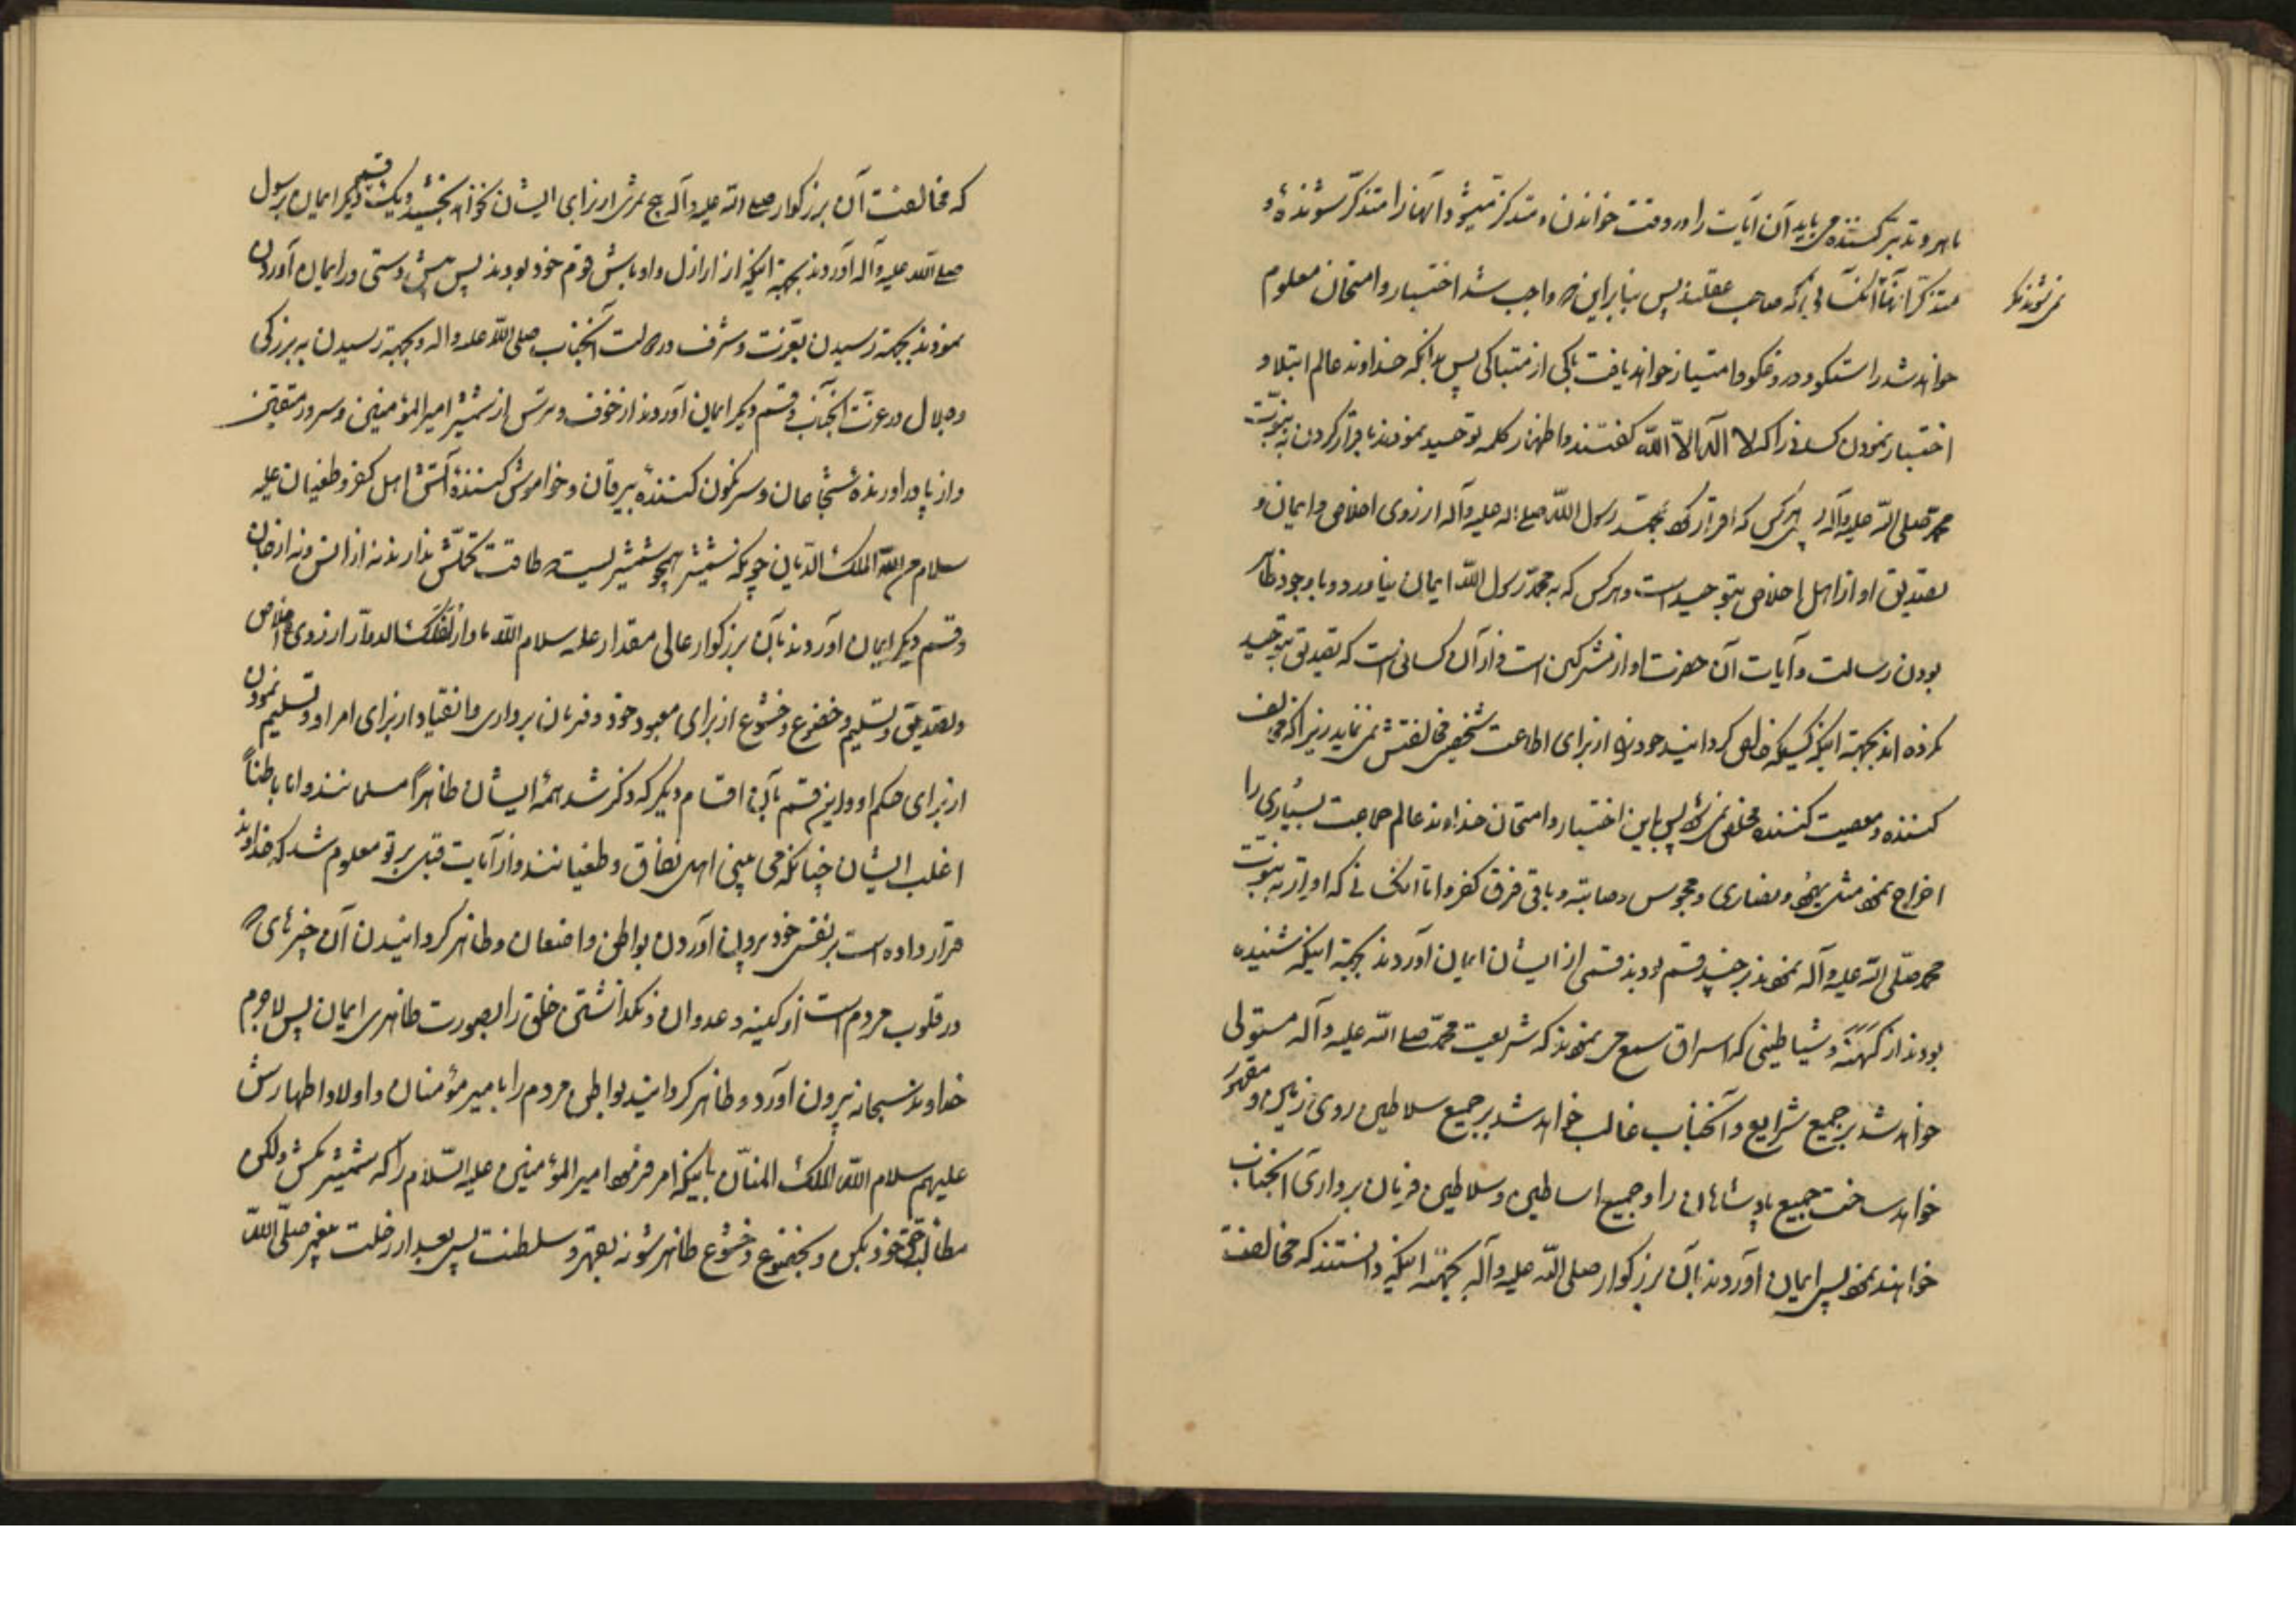 ماهر و تدبر کننده می‌یابد آن آیات را در وقت خواندن و متذکر میشود آنها را متذکر شونده و
نمی‌شوند مگر
متذکر آنها آنکسانی که صاحب عقلند پس بنابراین که واجب شد اختبار و امتحان معلوم
خواهد شد راستگو و دروغگو و امتیاز خواهد یافت باکی از متباکی پس بدانکه خداوند عالم ابتلا و
اختبار نمودن کسانی را که لا اله الا الله گفتند و اظهار کلمه توحید نمودند باقرار کردن به نبوت
محمد صلی الله علیه و آله پس هر کس که اقرار کرد بمحمد رسول الله صلی الله علیه و آله از روی اخلاص و ایمان و
تصدیق او از اهل اخلاص بتوحید است و هر کس که به محمد رسول الله ایمان نیاورد و با وجود ظاهر
بودن رسالت و آیات آن حضرت او از مشرکین است و از آن کسانی است که تصدیق بتوحید
نکرده‌اند بجهة اینکه کسیکه خالص گردانید خود را از برای اطاعت شخصی مخالفتش نمی‌نماید زیرا که مخالف
کننده و معصیت کننده مخلص نمی‌شود پس باین اختبار و امتحان خداوند عالم جماعت بسیاری را
اخراج نمود مثل یهود و نصاری و مجوس و صابئه و باقی فرق کفر و اما آنکسانی که اقرار به نبوت
محمد صلی الله علیه و آله نمودند بر چند قسم بودند قسمی از ایشان ایمان آوردند بجهة اینکه شنیده
بودند از کهنه و شیاطینی که استراق سمع می نمودند که شریعت محمد صلی الله علیه و آله مستولی
خواهد شد بر جمیع شرایع و آنجناب غالب خواهد شد بر جمیع سلاطین روی زمین و مقهور
خواهد ساخت جمیع پادشاهان را و جمیع اساطین و سلاطین فرمان برداری آنجناب
خواهند نمود پس ایمان آوردند بآن بزرگوار صلی الله علیه و آله بجهة اینکه دانستند که مخالفت
که مخالفت آن بزرگوار صلی الله علیه و آله هیچ ثمری از برای ایشان نخواهد بخشید و یک قسم دیگر ایمان برسول
صلی الله علیه و آله آوردند بجهة اینکه از اراذل و اوباش قوم خود بودند پس پیش دستی در ایمان آوردن
نمودند بجهة رسیدن بعزت و شرف در رسالت آنجناب صلی الله علیه و اله و بجهة رسیدن به بزرگی
و جلال در عزت آنجناب و قسم دیگر ایمان آوردند از خوف و ترس از شمشیر امیر المؤمنین و سرور متقین
و از پا در آورنده شجاعان و سرنگون کننده بیرقان و خواموش کننده آتش اهل کفر و طغیان علیه
سلام من الله الملک الدیان چونکه شمشیر همچو شمشیریست که طاقت تحملش ندارند نه از انس و نه از جان
و قسم دیگر ایمان آوردند بآن بزرگوار عالی مقدار علیه سلام الله ما دار الفلک الدوار از روی اخلاص
و تصدیق و تسلیم و خضوع و خشوع از برای معبود خود و فرمان برداری و انقیاد از برای امر او و تسلیم نمودن
از برای حکم او و این قسم بآن اقسام دیگر که ذکر شد همه ایشان ظاهراً مسلمانند و اما باطناً
اغلب ایشان چنانکه می بینی اهل نفاق و طغیانند و از آیات قبل بر تو معلوم شد که خداوند
قرار داده است بر نفس خود بیرون آوردن بواطن و اضغان و ظاهر گردانیدن آن چیزهائی که
در قلوب مردم است از کینه و عدوان و نگذاشتن خلق را بصورت ظاهری ایمان پس لاجرم
خداوند سبحانه بیرون آورد و ظاهر گردانید بواطن مردم را بامیر مؤمنان و اولاد اطهارش
علیهم سلام الله الملک المنان باینکه امر فرمود امیر المؤمنین علیه السلام را که شمشیر مکش ولکن
مطالبه حق خود بکن و بخضوع و خشوع ظاهر شو نه بقهر و سلطنت پس بعد از رحلت پیغمبر صلی الله